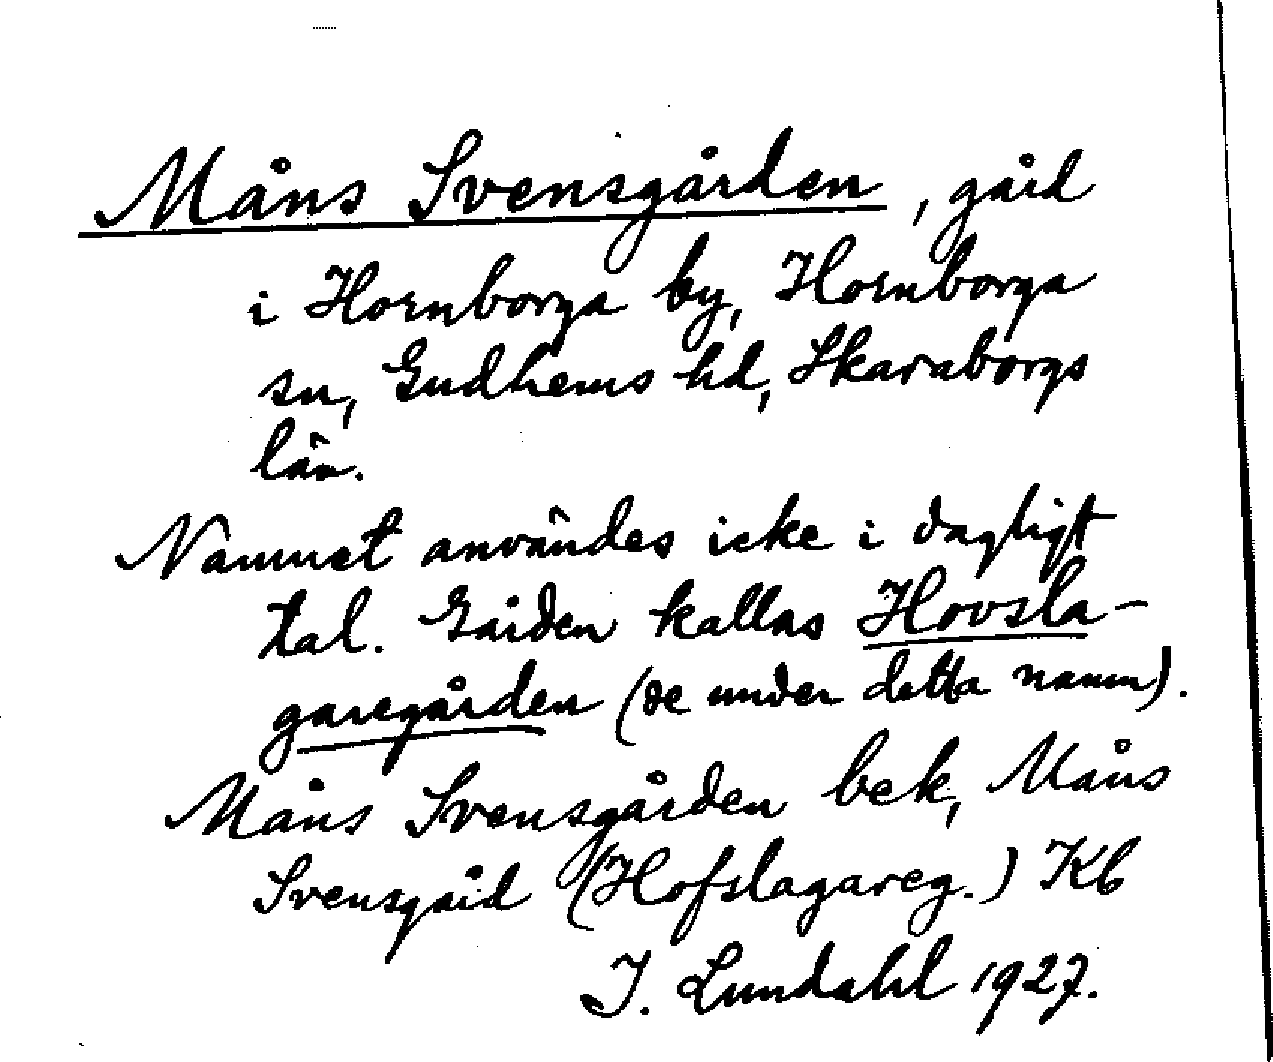 Måns Svensgården, gård
i Hornborga by, Hornborga
sn, Gudhems hd, Skaraborgs
län.
Namnet användes icke i dagligt
tal. Gården kallas Hovsla-
garegården (se under detta namn).
Måns Svensgården bek, Måns
Svensgård (Hofslagareg.) Kb
I. Lundahl 1927.